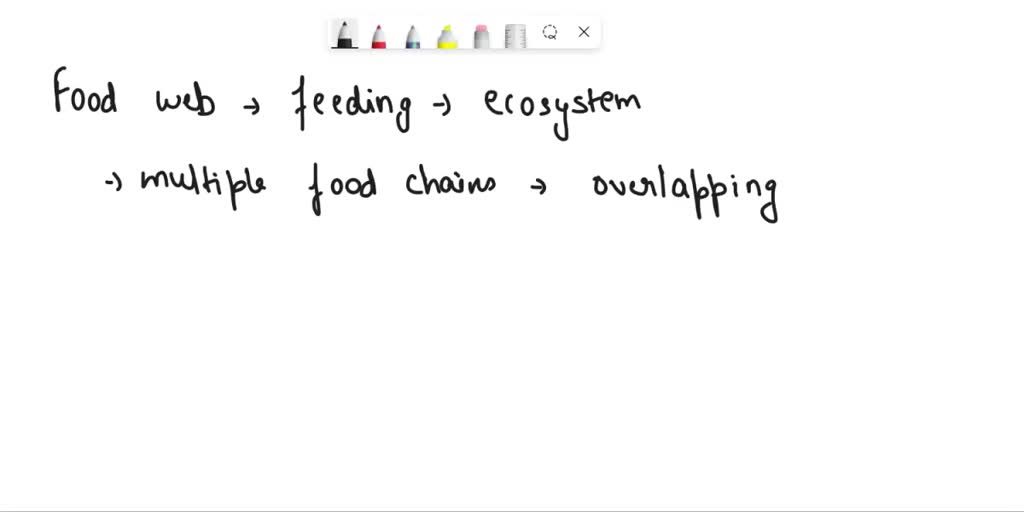 Food web → feeding → ecosystem
→ multiple food chains → overlapping